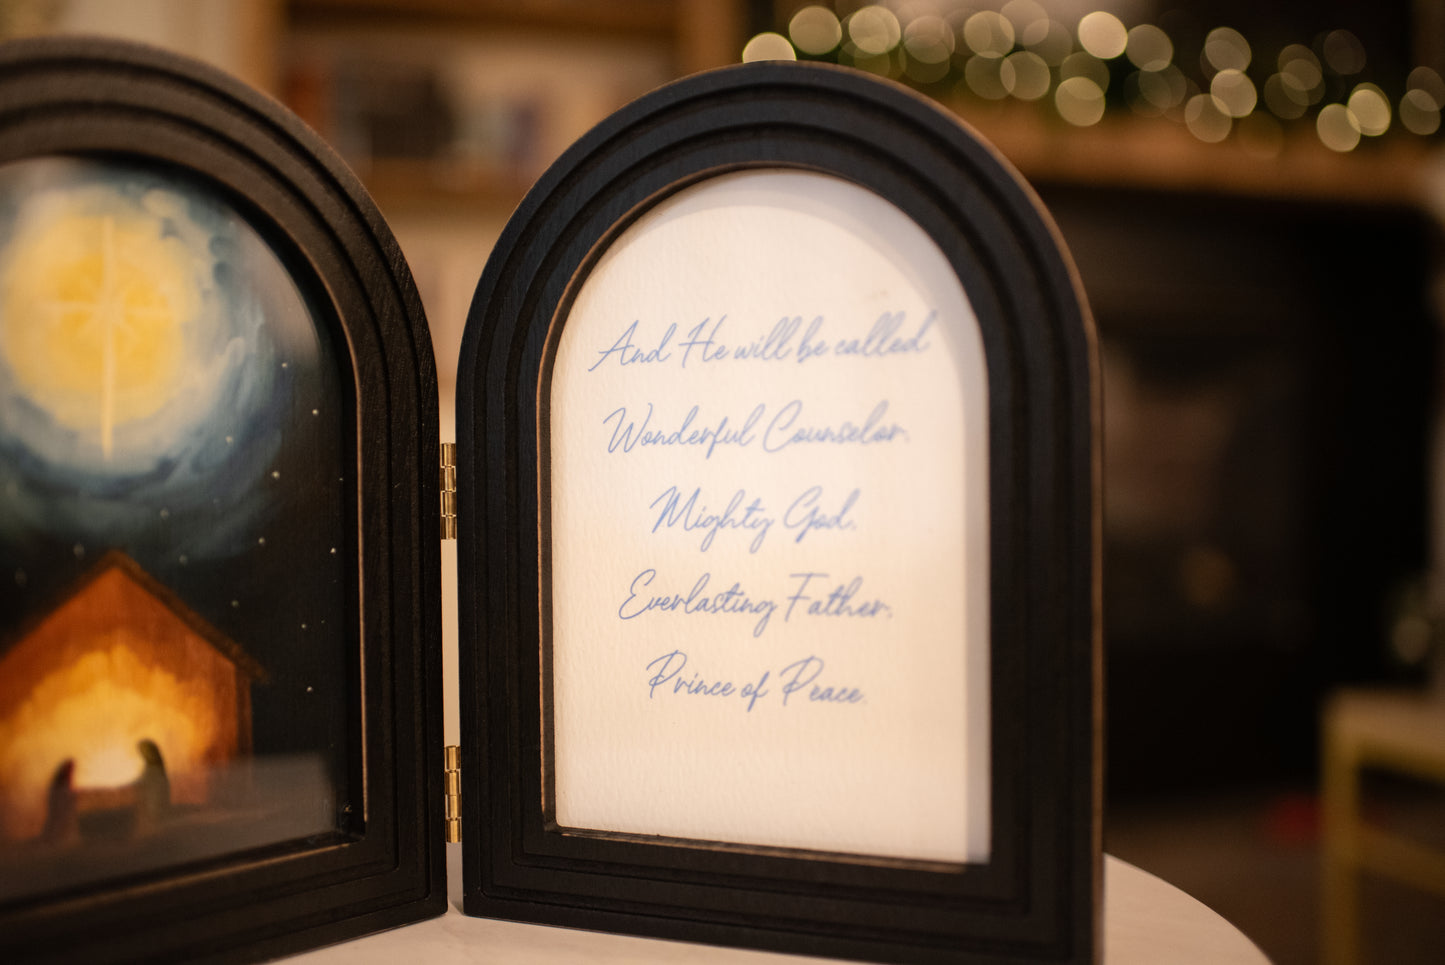 And He will be called
Wonderful Counselor,
Mighty God,
Everlasting Father,
Prince of Peace.